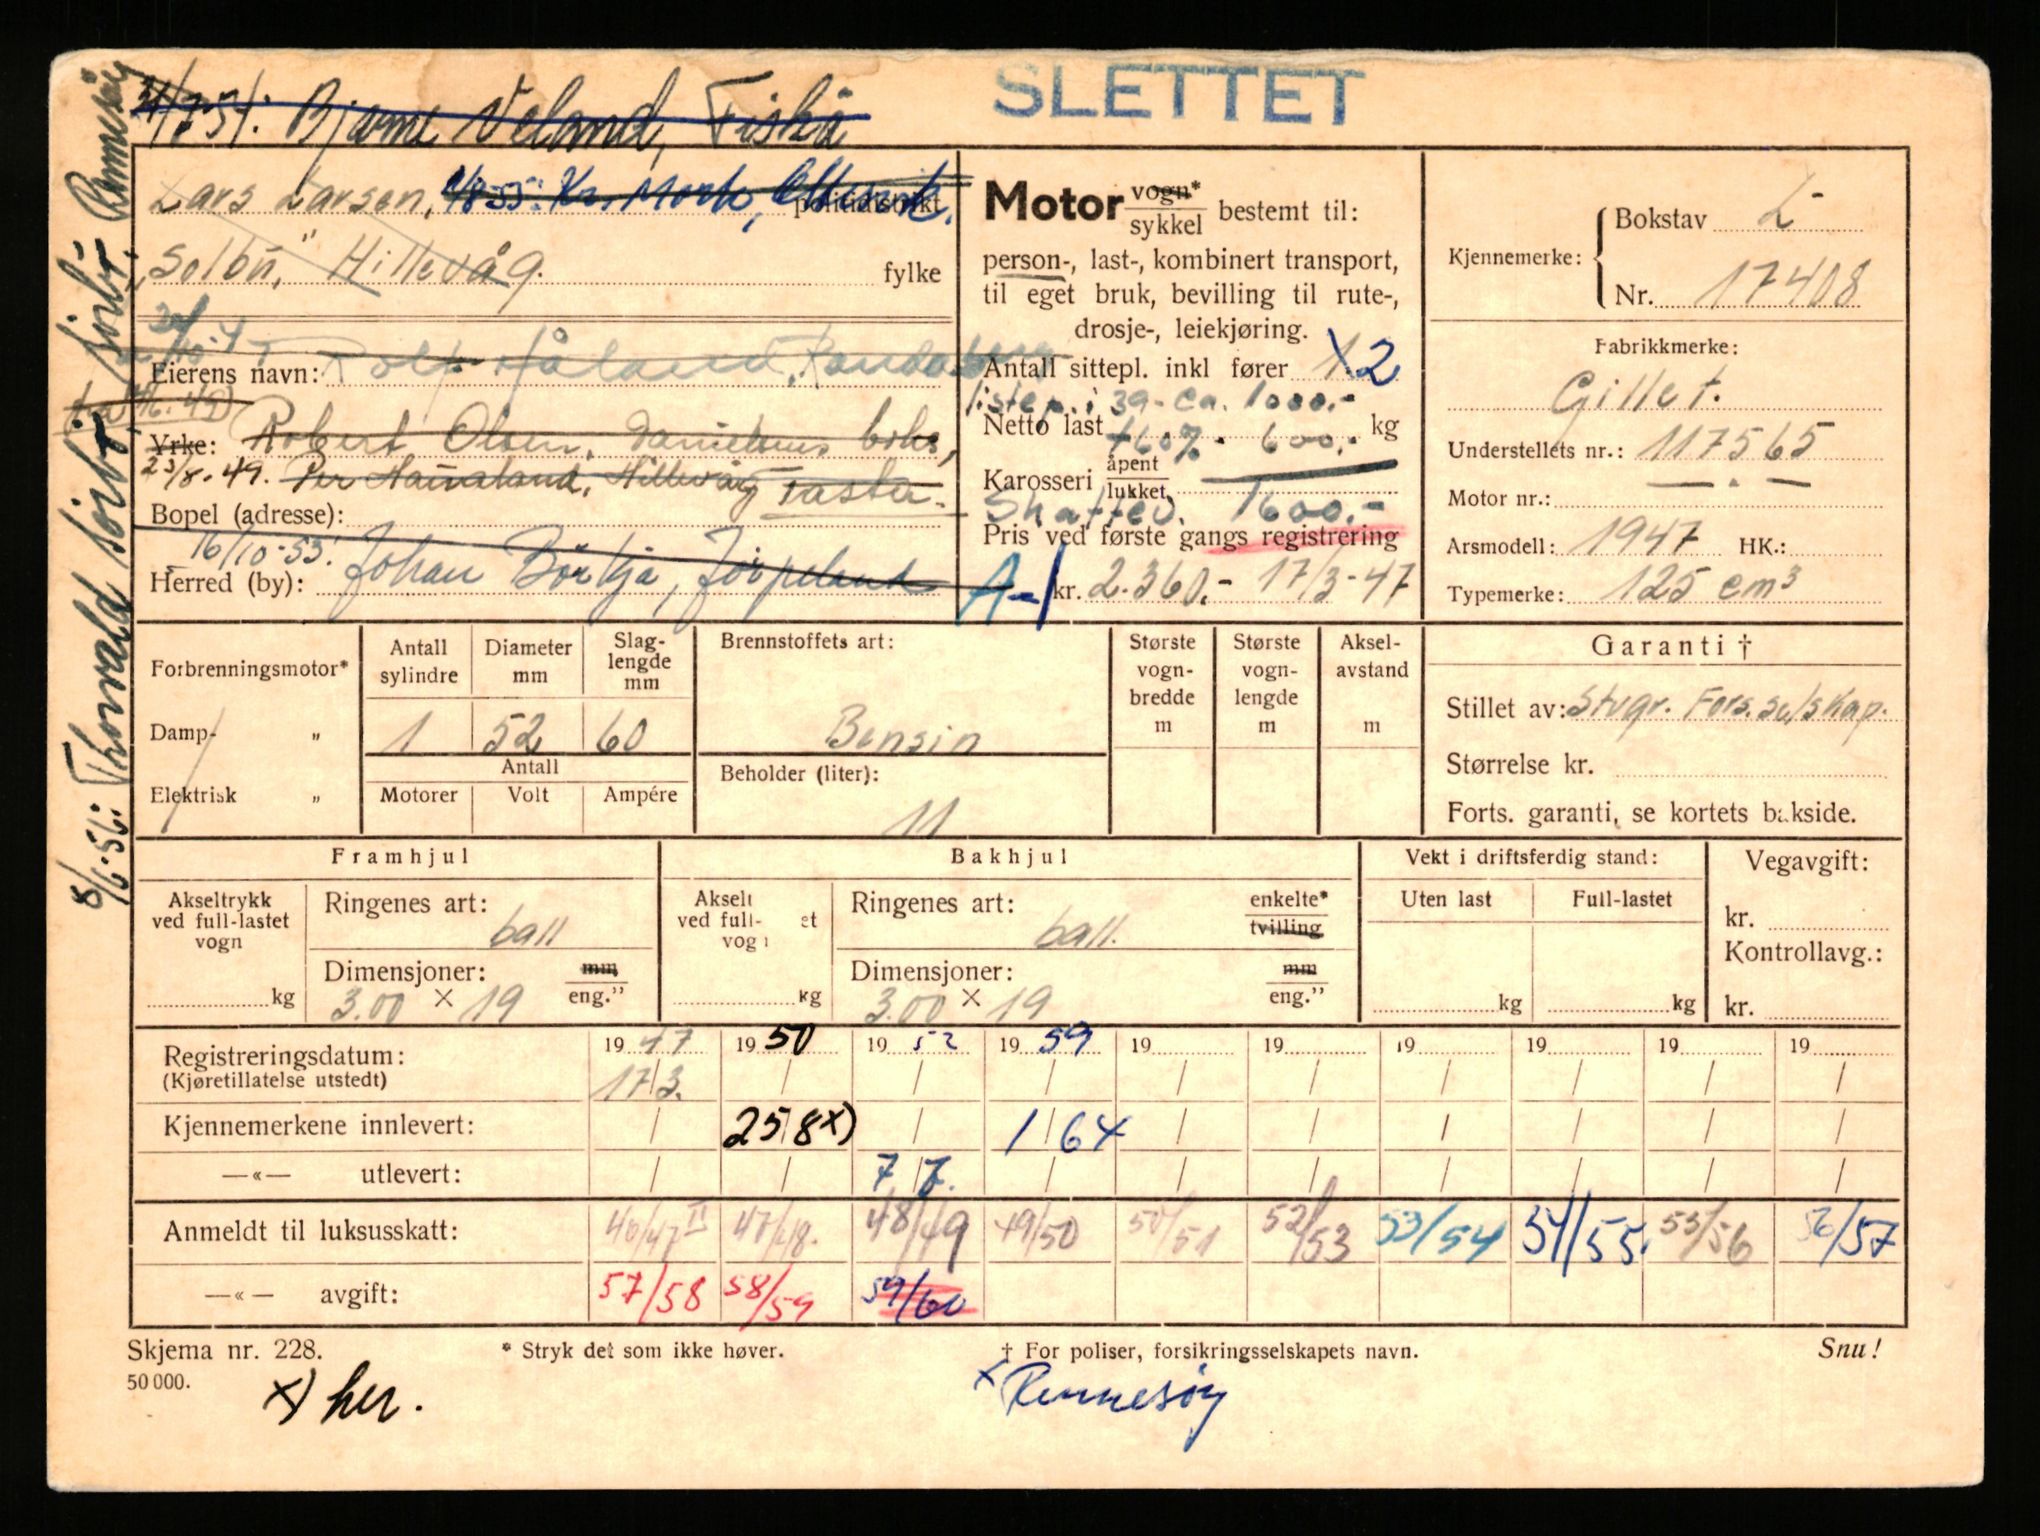 SLETTET
31/7-54: Bjarne Veland, Fiskå
Lars Larsen, 1/8-55: Kr. Mork, politidistrikt
"Solbu," Hillevåg. fylke
Eierens navn: Rolf Håland, Randaberg
Yrke: Robert Olsen, Danielsens
23/8-49. Per Haualand, Hillevåg
Bopel (adresse):
16/10-53: Johan Börkja, Jörpeland
Herred (by):
8/6-56: Thorvald Sörbö, Sörbö, Rennesöy
Motor vogn*
sykkel bestemt til:
person-, last-, kombinert transport,
til eget bruk, bevilling til rute-,
drosje-, leiekjøring.
Antall sittepl. inkl fører 1 2
listep. i 39 - ca. 1000.-
Netto last kg
+60% - 600.-
Karosseri åpent
lukket
Skattev. 1600.-
Pris ved første gangs registrering
A-1 kr. 2.360.- 17/3-47
Kjennemerke: Bokstav L
Nr. 17408
Fabrikkmerke:
Gillet.
Understellets nr.: 117565
Motor nr.: — . —
Arsmodell: 1947 HK.:
Typemerke: 125 cm3
Forbrenningsmotor*
Damp- „
Elektrisk „
Antall sylindre
Diameter mm
Slag-lengde mm
1 52 60
Antall
Motorer Volt Ampére
Brennstoffets art:
Bensin
Beholder (liter):
11
Største vogn-bredde m
Største vogn-lengde m
Aksel-avstand m
Garanti †
Stillet av: Stvgr. Fors.selskap.
Størrelse kr.
Forts. garanti, se kortets bakside.
Framhjul
Akseltrykk
ved full-lastet
vogn
kg
Ringenes art:
ball
Dimensjoner: mm
3.00 × 19 eng."
Bakhjul
Akselt
ved full- et
vog
kg
Ringenes art: enkelte*
ball. tvilling
Dimensjoner: mm
3.00 × 19 eng."
Vekt i driftsferdig stand:
Uten last Full-lastet
kg kg
Vegavgift:
kr.
Kontrollavg.:
kr.
Registreringsdatum: 19 47 19 50 19 52 19 59 19 19 19 19 19 19
(Kjøretillatelse utstedt) 17/3. / / / / / / / / /
Kjennemerkene innlevert: / 25/8 x) / 1/64 / / / / / /
—«— utlevert: / / 7/7. / / / / / / /
Anmeldt til luksusskatt: 46/47 II 47/48. 48/49 49/50 50/51 52/53 53/54 54/55. 55/56 56/57
—«— avgift: 57/58 58/59 59/60
Skjema nr. 228. * Stryk det som ikke høver. † For poliser, forsikringsselskapets navn. Snu!
50 000.
x) her. x Rennesöy